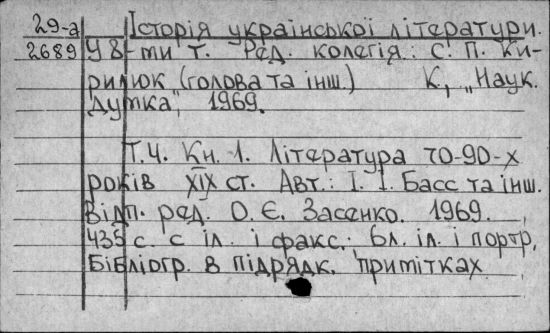 29-а Історія української літератури.
2689 У 8-ми т. Ред. колегія: С. П. Ки-
рилюк (голова та інш.) К., „Наук.
думка", 1969.
Т.4. Кн. 1. Література 70-90-х
років XIX ст. Авт.: І. І. Басс та інш.
Відп. ред. О. Є. Засенко. 1969.
435 с. с іл. і факс.; 6л. іл. і портр.
Бібліогр. в підрядк. примітках